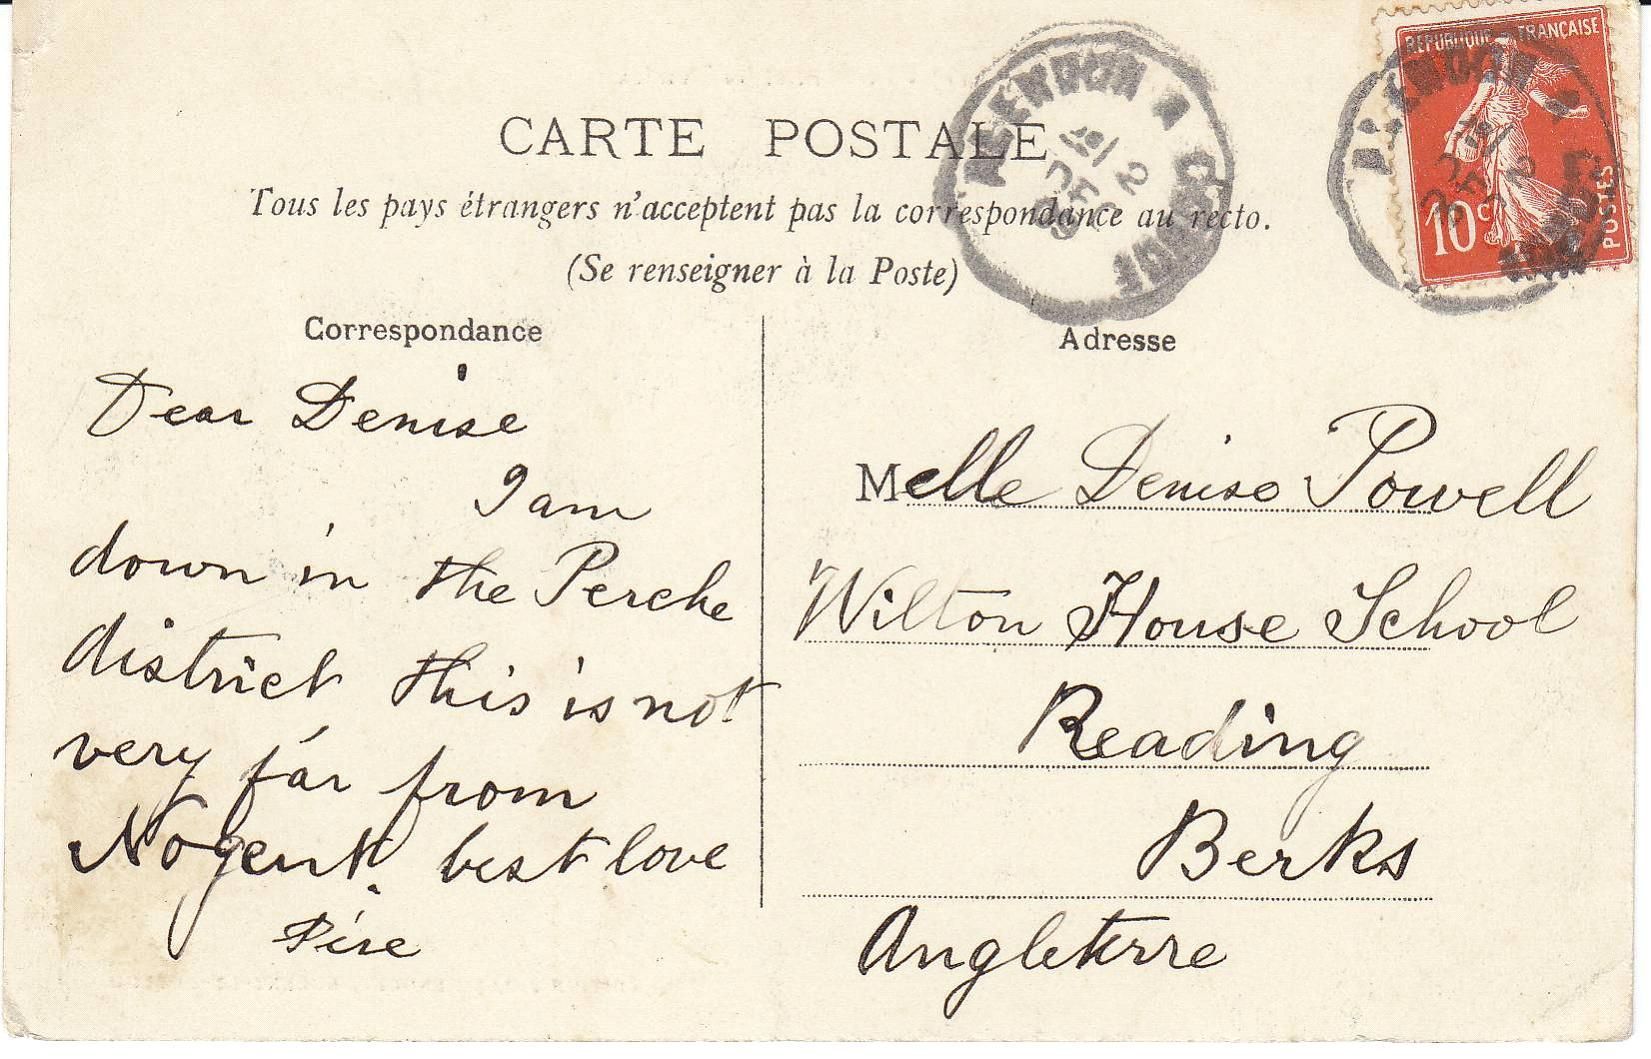 CARTE POSTALE
RÉPUBLIQUE FRANÇAISE
10c
POSTES
Tous les pays étrangers n'acceptent pas la correspondance au recto.
(Se renseigner à la Poste)
Correspondance
Dear Denise
I am
down in the Perche
district this is not
very far from
Nogent best love
Père
Adresse
Melle Denise Powell
Wilton House School
Reading
Berks
Angleterre